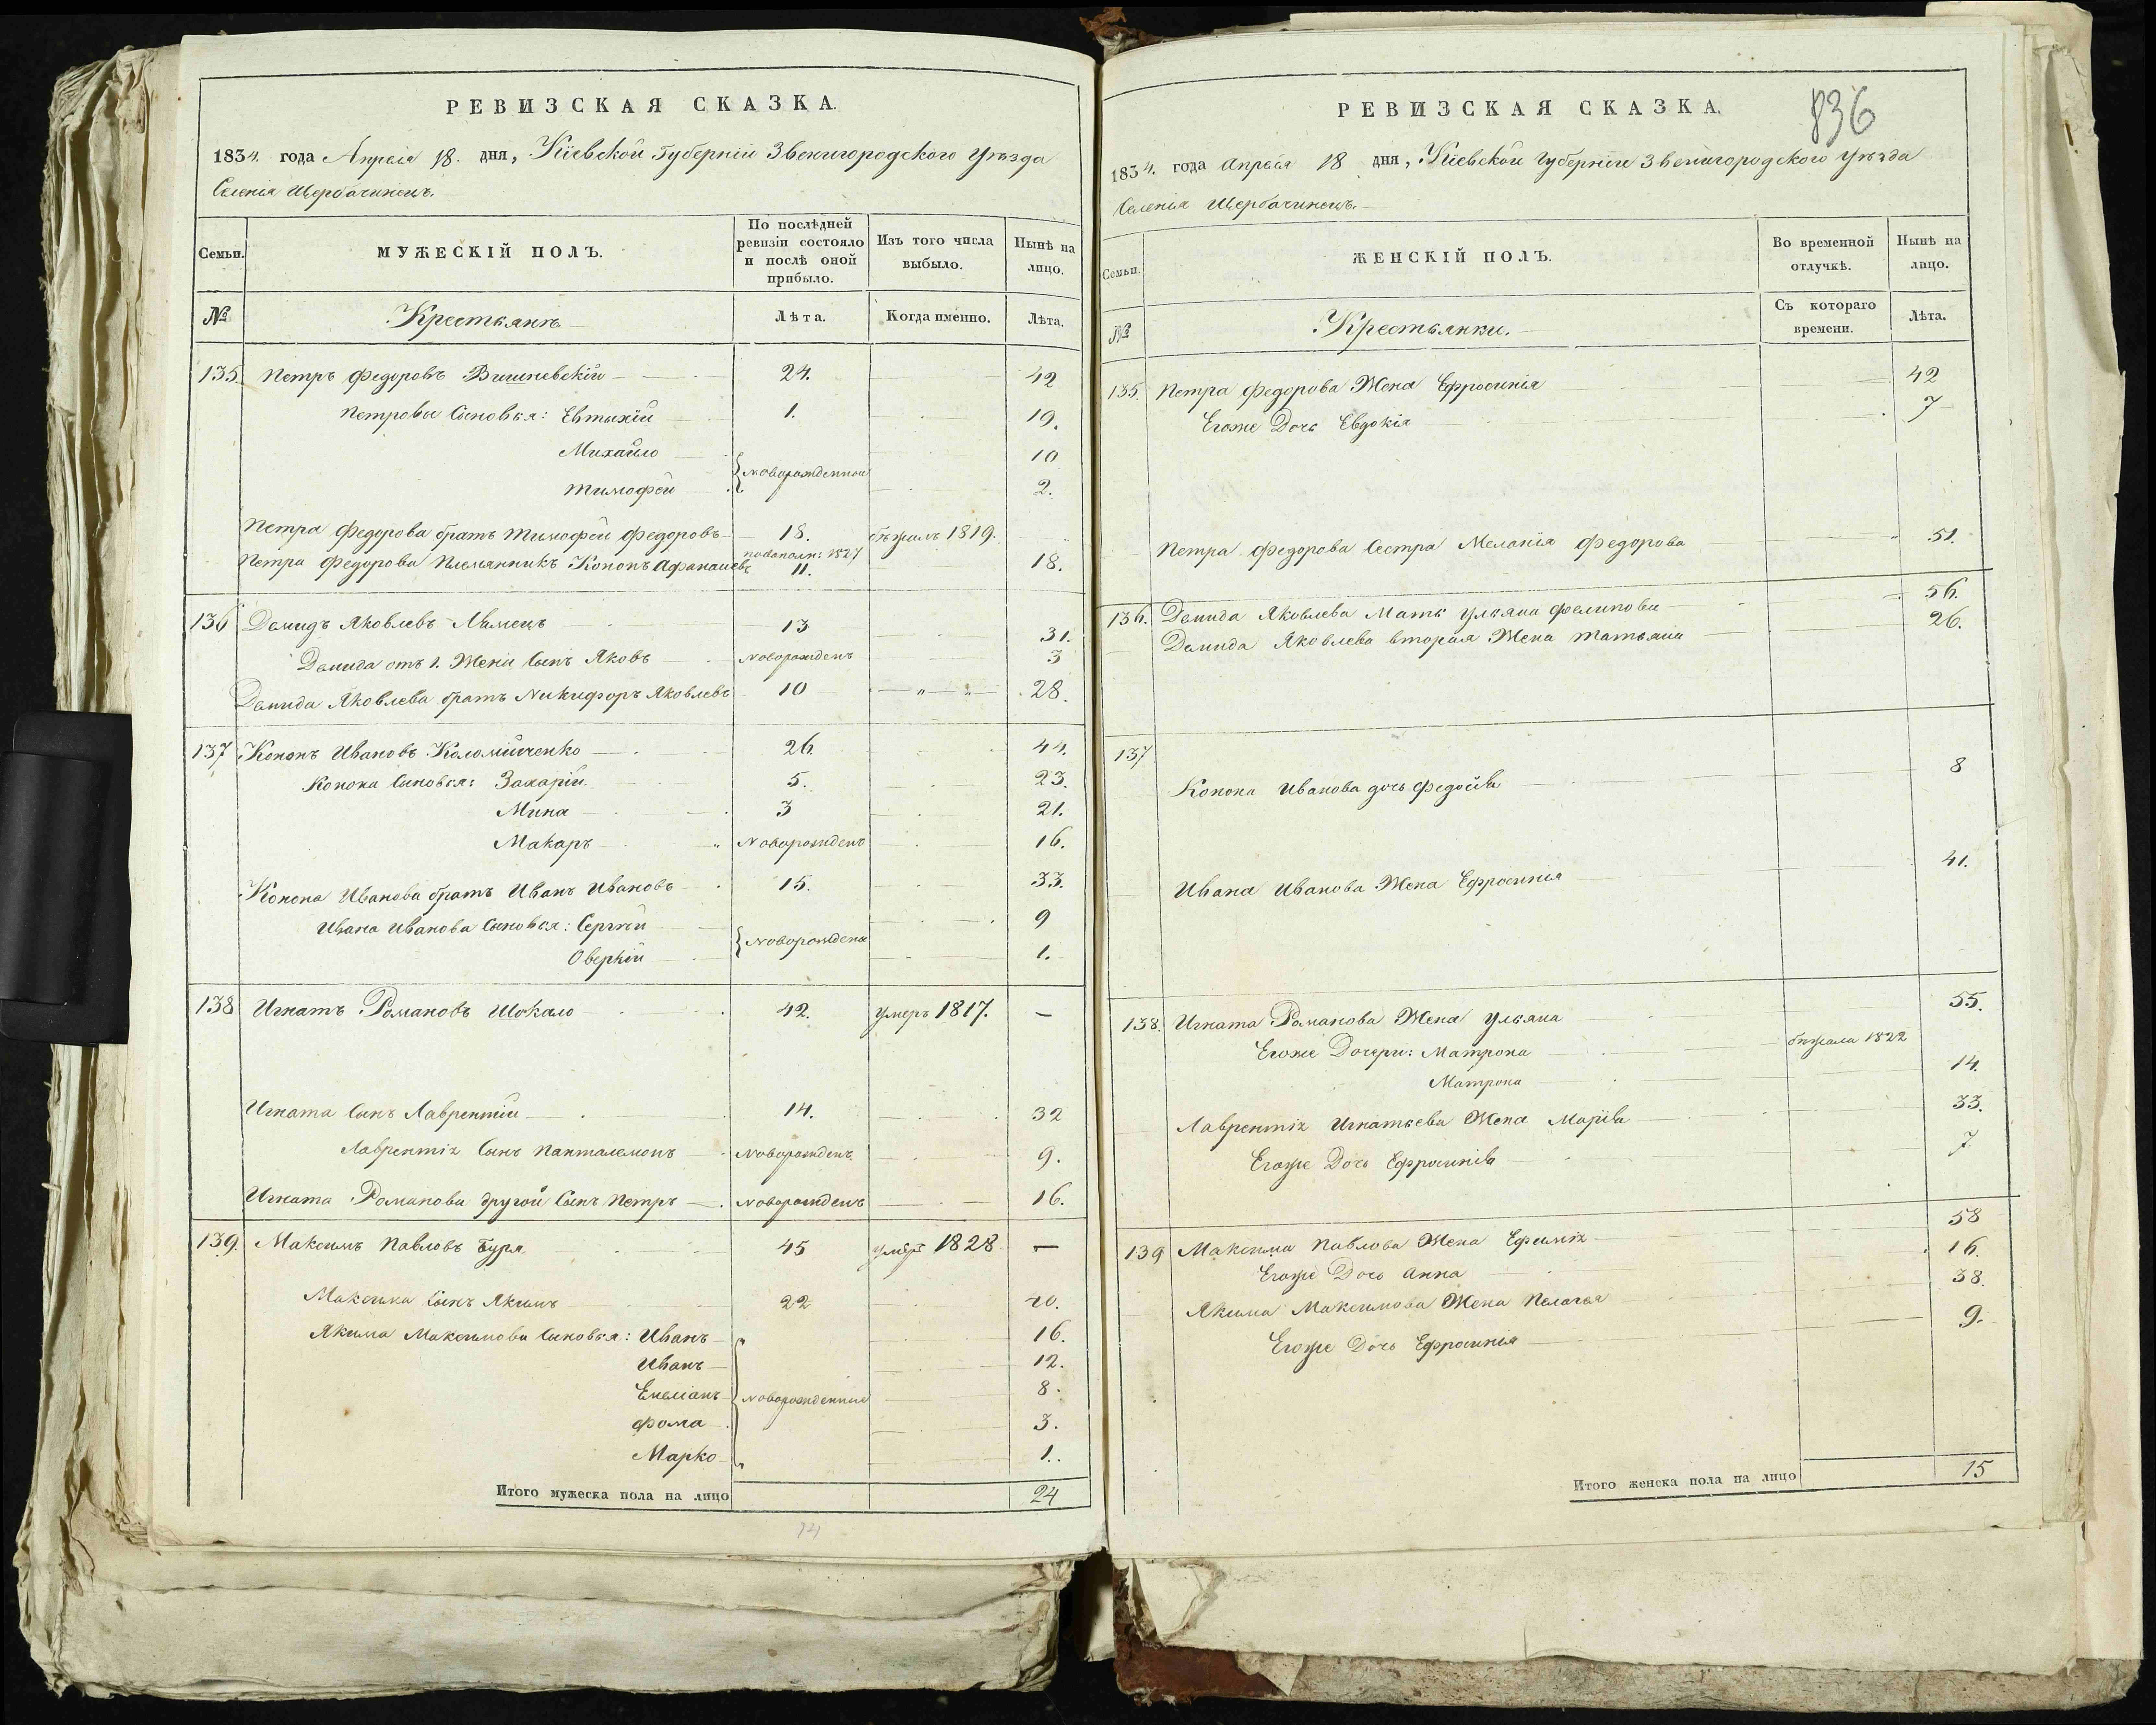 РЕВИЗСКАЯ СКАЗКА.
1834. года Апреля 18. дня, Кіевской Губерніи Звенигородского Уезда
Селенія Щербачинецъ.
Семьи.
МУЖЕСКІЙ ПОЛЪ.
По послѣдней ревизіи состояло и послѣ оной прибыло.
Изъ того числа выбыло.
Нынѣ на лицо.
№ Крестьянъ Лѣта. Когда именно. Лѣта.
135. Петръ Федоровъ Вишневскій 24. 42
Петровы Сыновья: Евтихій 1. 19.
Михайло 10
новорожденнои
Тимофей 2.
Петра Федорова братъ Тимофей Федоровъ 18. бѣжалъ 1819.
Петра Федорова Племянникъ Кононъ Афанасіевъ 11. 18.
136 Демидъ Яковлевъ 13 31.
Демида отъ 1. Жены Сынъ Яковъ Новорожденъ 3
Демида Яковлева братъ Никифоръ Яковлевъ 10 — " — " — 28.
137 Кононъ Ивановъ Коломийченко 26 44.
Конона Сыновья: Захарій. 5. 23.
Мина 3 21.
Макаръ Новорожденъ 16.
Конона Иванова братъ Иванъ Ивановъ 15. 33.
Ивана Иванова Сыновья: Сергѣй 9
Новорождены
Оверкій 1.
138 Игнатъ Романовъ Шокало 42. умеръ 1817. —
Игната Сынъ Лаврентій 14. 32
Лаврентія Сынъ Панталемонъ Новорожденъ. 9.
Игната Романова другой Сынъ Петръ Новорожденъ 16.
139. Максимъ Павловъ Буря 45 умеръ 1828 —
Максима Сынъ Якимъ 22 40.
Якима Максимова Сыновья: Иванъ 16.
Иванъ 12.
Емеліанъ Новорожденные 8.
Фома 3.
Марко 1.
Итого мужеска пола на лицо 24
14
РЕВИЗСКАЯ СКАЗКА.
836
1834. года Апреля 18 дня, Кіевской Губерніи Звенигородского Уезда
Селенія Щербачинецъ.
Семьи.
ЖЕНСКІЙ ПОЛЪ.
Во временной отлучкѣ.
Нынѣ на лицо.
№ Крестьянки. Съ котораго времени. Лѣта.
135. Петра Федорова Жена Ефросинія 42
Егоже Дочь Евдокія 7
Петра Федорова Сестра Меланія Федорова 51.
136. Демида Яковлева Мать Ульяна Фелипова 56.
Демида Яковлева вторая Жена Татьяна 26.
137
Конона Иванова дочь 8
Ивана Иванова Жена Ефросинія 41.
138. Игната Романова Жена Ульяна 55.
Егоже Дочери: Матрона бѣжала 1822
Матрона 14.
Лаврентія Игнатьева Жена Марія 33.
Егоже Дочь Ефросинія 7
139 Максима Павлова Жена Ефимія 58
Егоже Дочь Анна 16.
Якима Максимова Жена Пелагея 38.
Егоже Дочь Ефросинія 9.
Итого женска пола на лицо 15